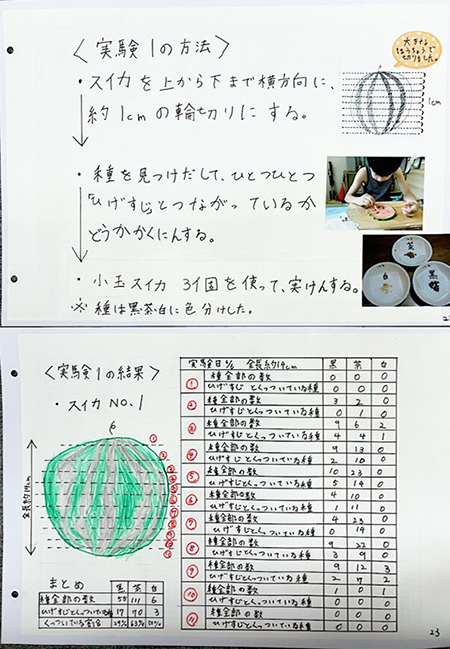 〈実験1の方法〉
大きなほうちょうで切りました。
・スイカを上から下まで横方向に、
約1cmの輪切りにする。
1cm
・種を見つけだして、ひとつひとつ
「ひげすじ」とつながっているか
どうかかくにんする。
・小玉スイカ 3個を使って、実けんする。
※種は黒・茶・白に色分けした。
茶
白
黒
〈実験1の結果〉
・スイカNO.1
全長約14cm
実験日 全長約14cm 黒 茶 白
① 種全部の数 0 0 0
ひげすじとくっついている種 0 0 0
② 種全部の数 3 2 0
ひげすじとくっついている種 0 1 0
③ 種全部の数 9 6 2
ひげすじとくっついている種 4 4 1
④ 種全部の数 9 13 0
ひげすじとくっついている種 2 10 0
⑤ 種全部の数 10 23 0
ひげすじとくっついている種 5 14 0
⑥ 種全部の数 4 10 0
ひげすじとくっついている種 1 11 0
⑦ 種全部の数 4 23 0
ひげすじとくっついている種 0 14 0
⑧ 種全部の数 9 22 0
ひげすじとくっついている種 3 9 0
⑨ 種全部の数 9 12 3
ひげすじとくっついている種 2 7 2
⑩ 種全部の数 1 0 1
ひげすじとくっついている種 0 0 0
⑪ 種全部の数 0 0 0
ひげすじとくっついている種 0 0 0
まとめ 黒 茶 白
種全部の数 58 111
ひげすじとくっついている種 17 70 3
くっついている割合 29% 63%
23